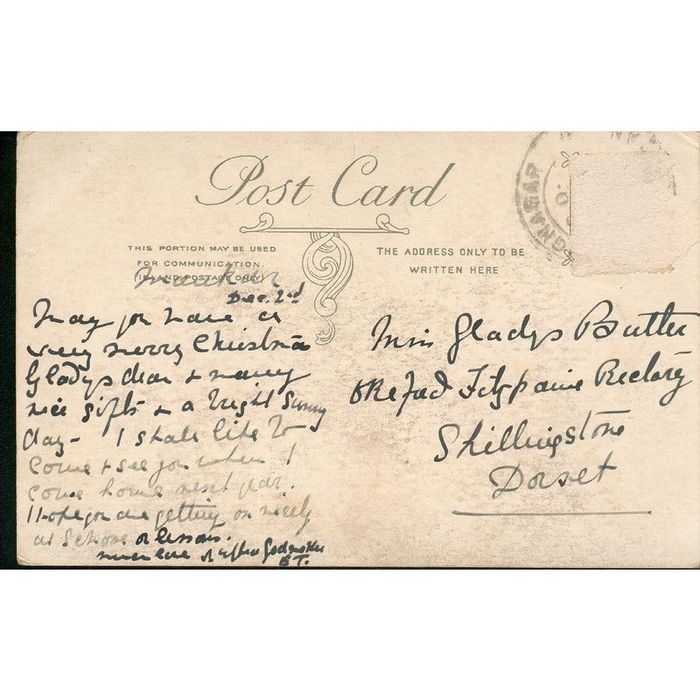 Post Card
THIS PORTION MAY BE USED
FOR COMMUNICATION.
(INLAND POSTAGE ONLY)
THE ADDRESS ONLY TO BE
WRITTEN HERE
GNAGAR
Dec. 2nd
May you have a
very merry Christmas
Gladys dear & many
nice gifts & a bright sunny
day - I shall like to
come & see you when I
come home next year.
I hope you are getting on nicely
at School or lessons.
much love Godmother
B.T.
Miss Gladys Butler
Okeford Fitzpaine Rectory
Shillingstone
Dorset